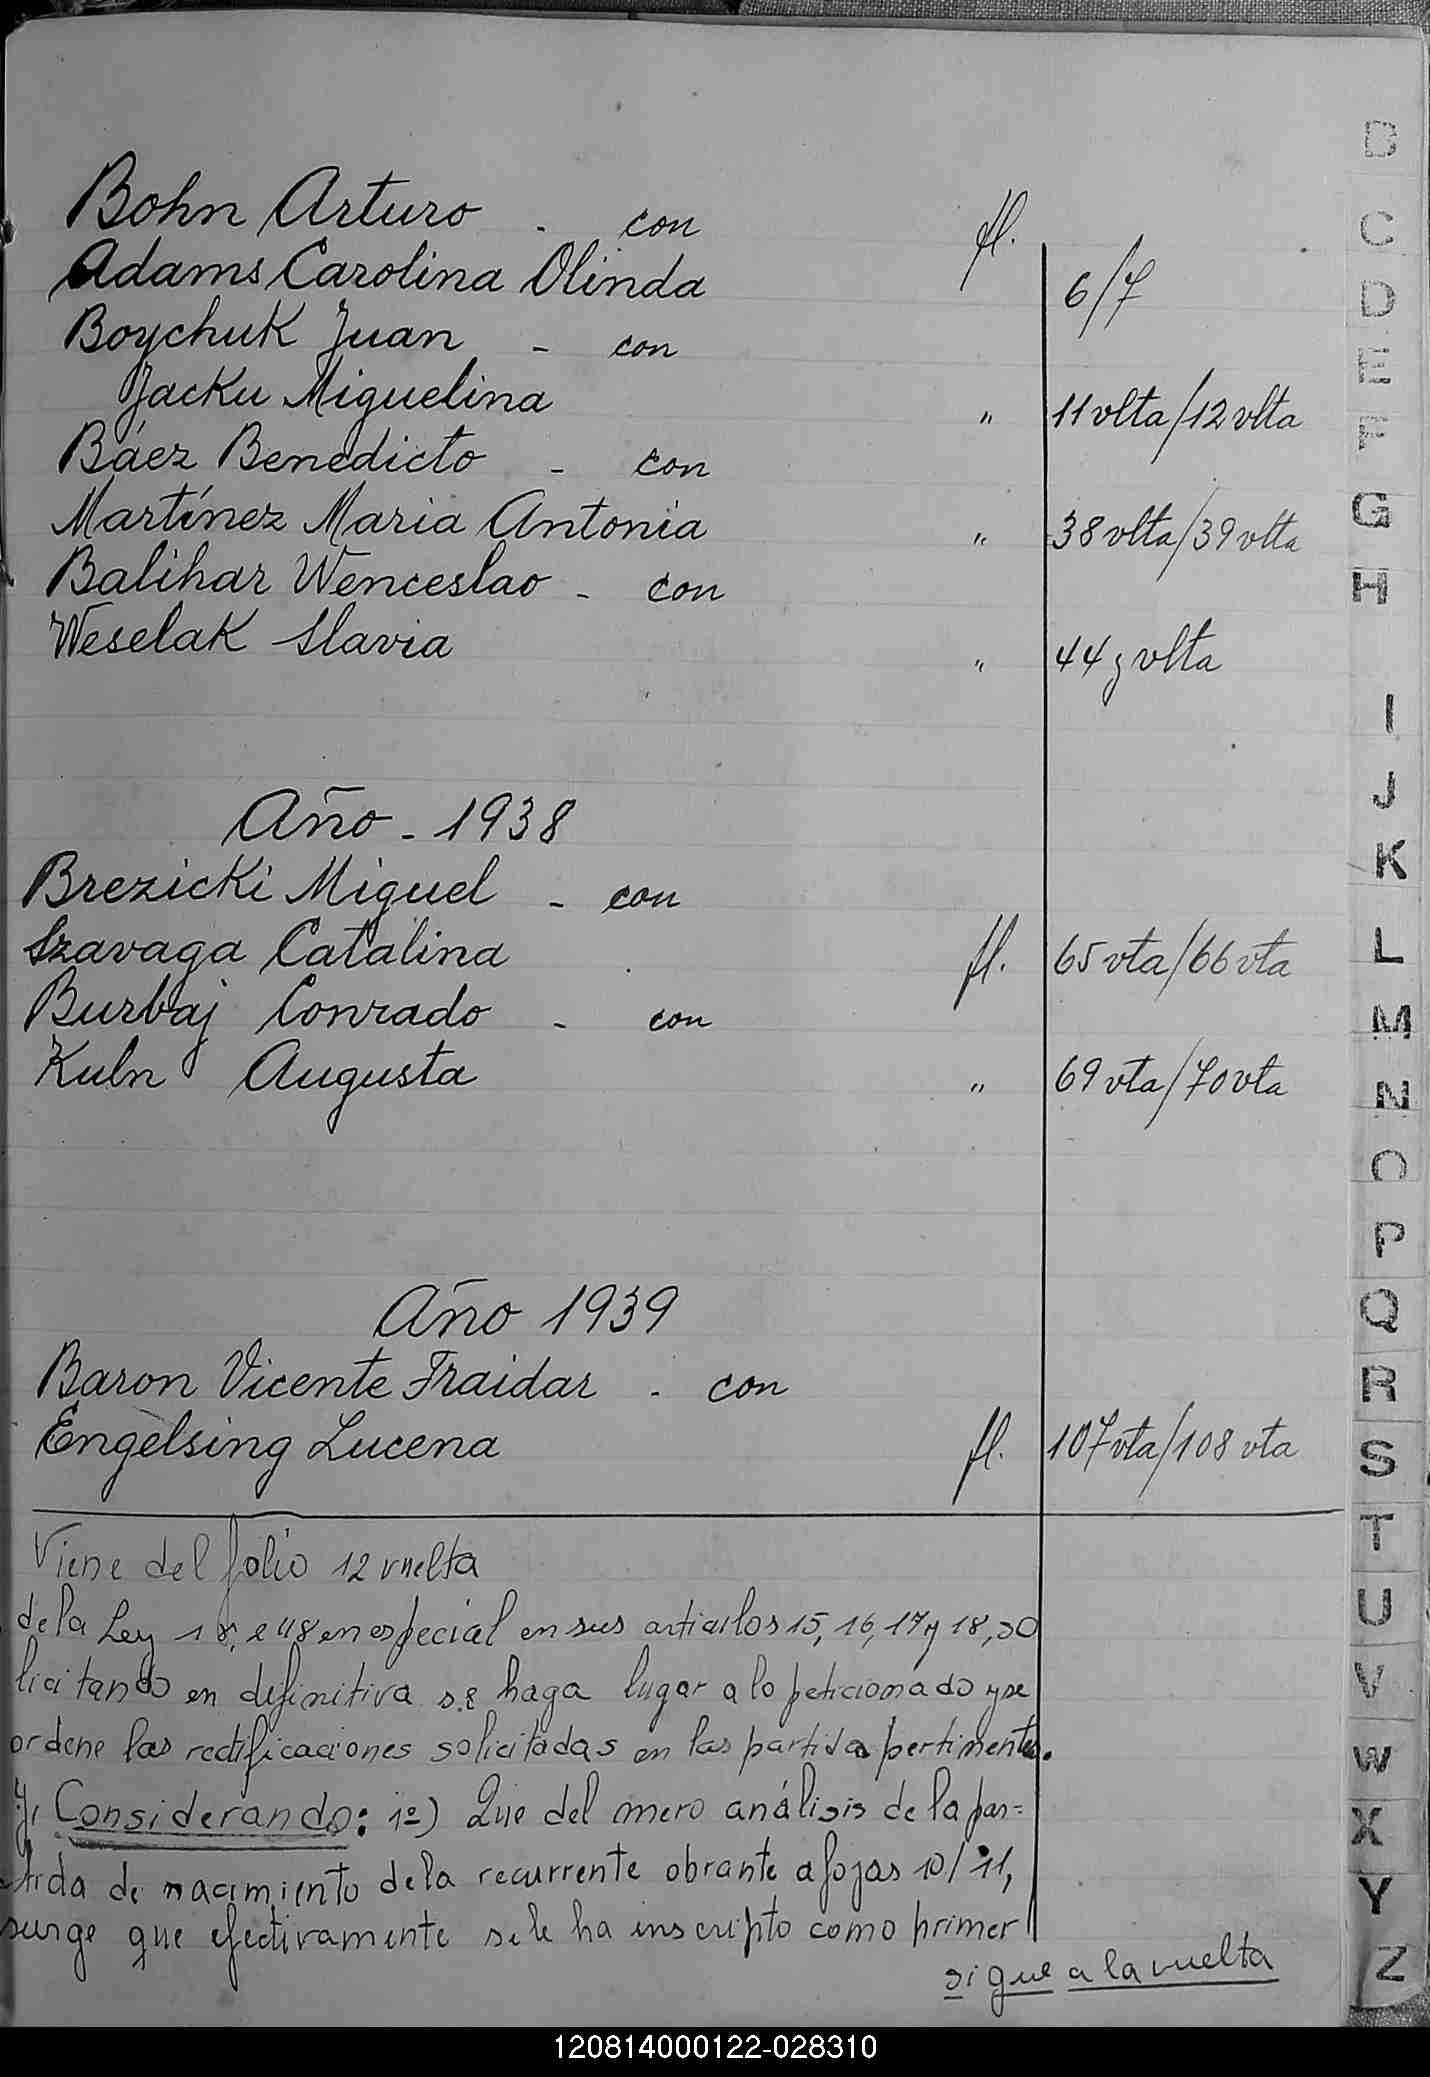 Bohn Arturo - con fl.
Adams Carolina Olinda 6/7
Boychuk Juan - con
Jacku Miguelina " 11 vlta/12 vlta
Báez Benedicto - con
Martínez Maria Antonia " 38 vlta/39 vlta
Balihar Wenceslao - con
Weselak Slavia " 44 y vlta
Año - 1938
Brezicki Miguel - con
Szavaga Catalina fl. 65 vta/66 vta
Burbaj Conrado - con
Kuln Augusta " 69 vta/70 vta
Año 1939
Baron Vicente Fraidar - con
Engelsing Lucena fl. 107 vta/108 vta
Viene del folio 12 vuelta
de la Ley 18,248 en especial en sus articulos 15, 16, 17 y 18, so
licitando en definitiva se haga lugar a lo peticionado y se
ordene las rectificaciones solicitadas en las partida pertinentes.
Y, Considerando: 1º) Que del mero análisis de la par=
tida de nacimiento de la recurrente obrante a fojas 10/11,
surge que efectivamente se le ha inscripto como primer
sigue a la vuelta
B
C
D
E
F
G
H
I
J
K
L
M
N
O
P
Q
R
S
T
U
V
W
X
Y
Z
120814000122-028310